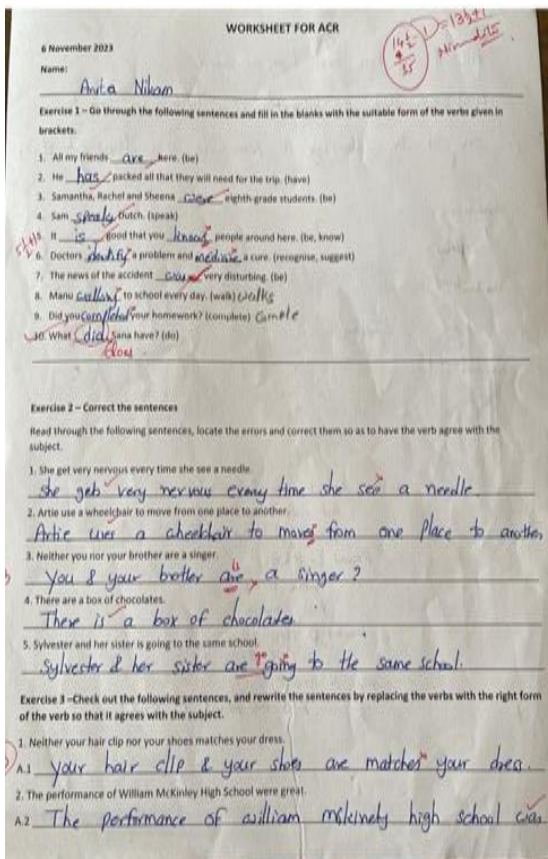 WORKSHEET FOR ACR
6 November 2023
Name:
Anita Nikam
Exercise 1 – Go through the following sentences and fill in the blanks with the suitable form of the verbs given in
brackets.
1. All my friends are here. (be)
2. He has packed all that they will need for the trip. (have)
3. Samantha, Rachel and Sheena were eighth-grade students. (be)
4. Sam speaks Dutch. (speak)
5. It is good that you people around here. (be, know)
6. Doctors identify a problem and medicine a cure. (recognise, suggest)
7. The news of the accident was very disturbing. (be)
8. Manu to school every day. (walk) walks
9. Did you completed your homework? (complete)
10. What did Sana have? (do)
does
Exercise 2 – Correct the sentences
Read through the following sentences, locate the errors and correct them so as to have the verb agree with the
subject.
1. She get very nervous every time she see a needle.
She gets very nervous every time she see a needle.
2. Artie use a wheelchair to move from one place to another.
Artie uses a cheelchair to moves from one place to another,
3. Neither you nor your brother are a singer.
You & your brother are, a singer?
4. There are a box of chocolates.
There is a box of chocolates
5. Sylvester and her sister is going to the same school.
Sylvester & her sister are going to the same school.
Exercise 3 –Check out the following sentences, and rewrite the sentences by replacing the verbs with the right form
of the verb so that it agrees with the subject.
1. Neither your hair clip nor your shoes matches your dress.
A.1 your hair clip & your shoes are matches your dress.
2. The performance of William McKinley High School were great.
A.2 The performance of william mckinely high school was